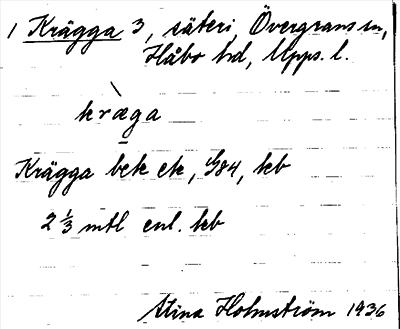 1 Krägga 3, säteri, Övergrans sn,
Håbo hd, Upps. l.
kræga
Krägga bek ek, G84, kb
2 1/3 mtl enl. kb
Stina Holmström 1936